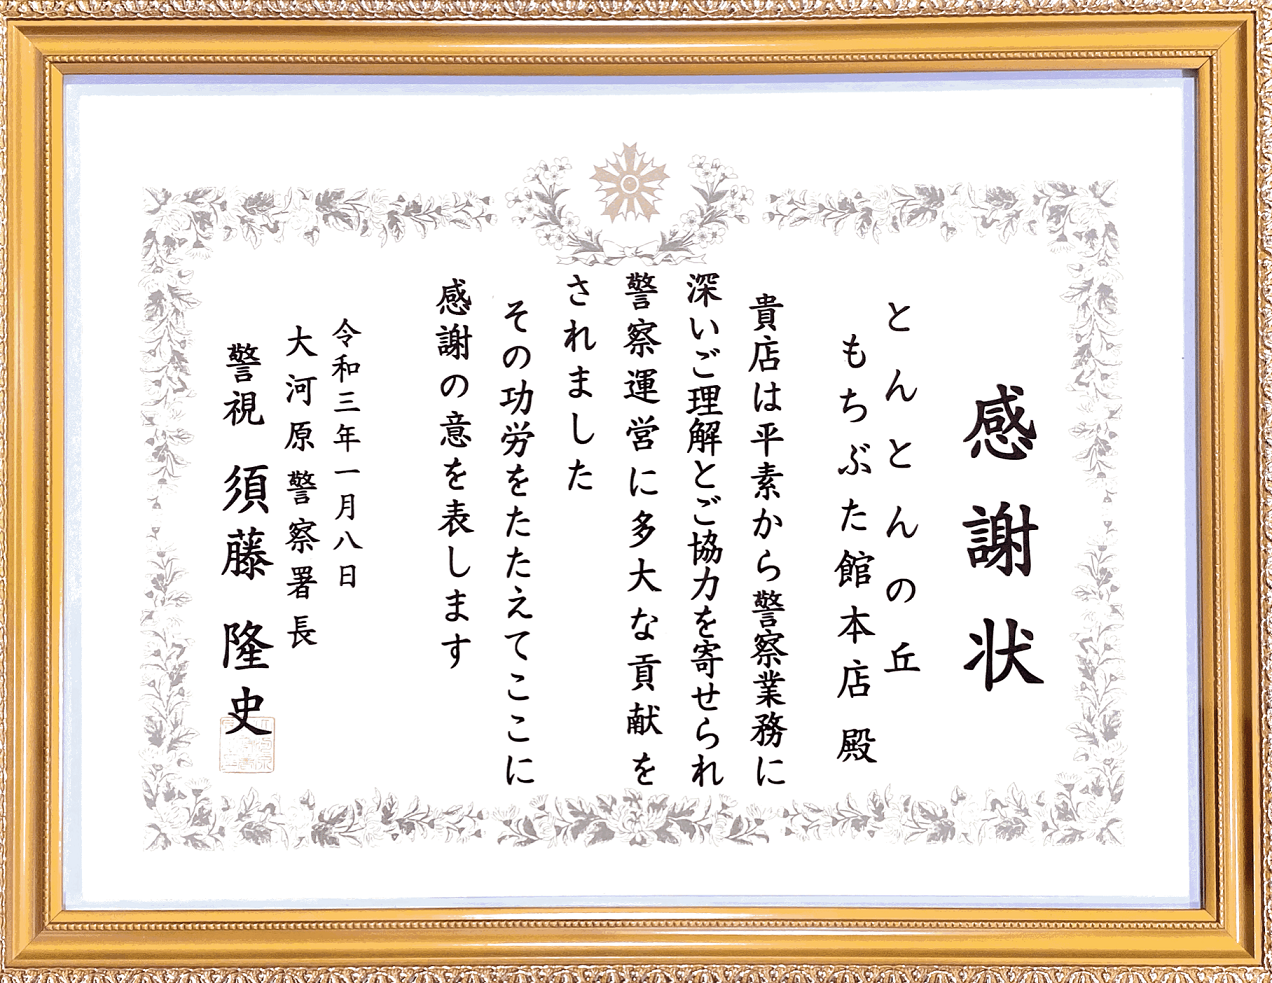 感謝状
とんとんの丘
もちぶた館本店 殿
貴店は平素から警察業務に
深いご理解とご協力を寄せられ
警察運営に多大な貢献を
されました
その功労をたたえてここに
感謝の意を表します
令和三年一月八日
大河原警察署長
警視 須藤 隆史